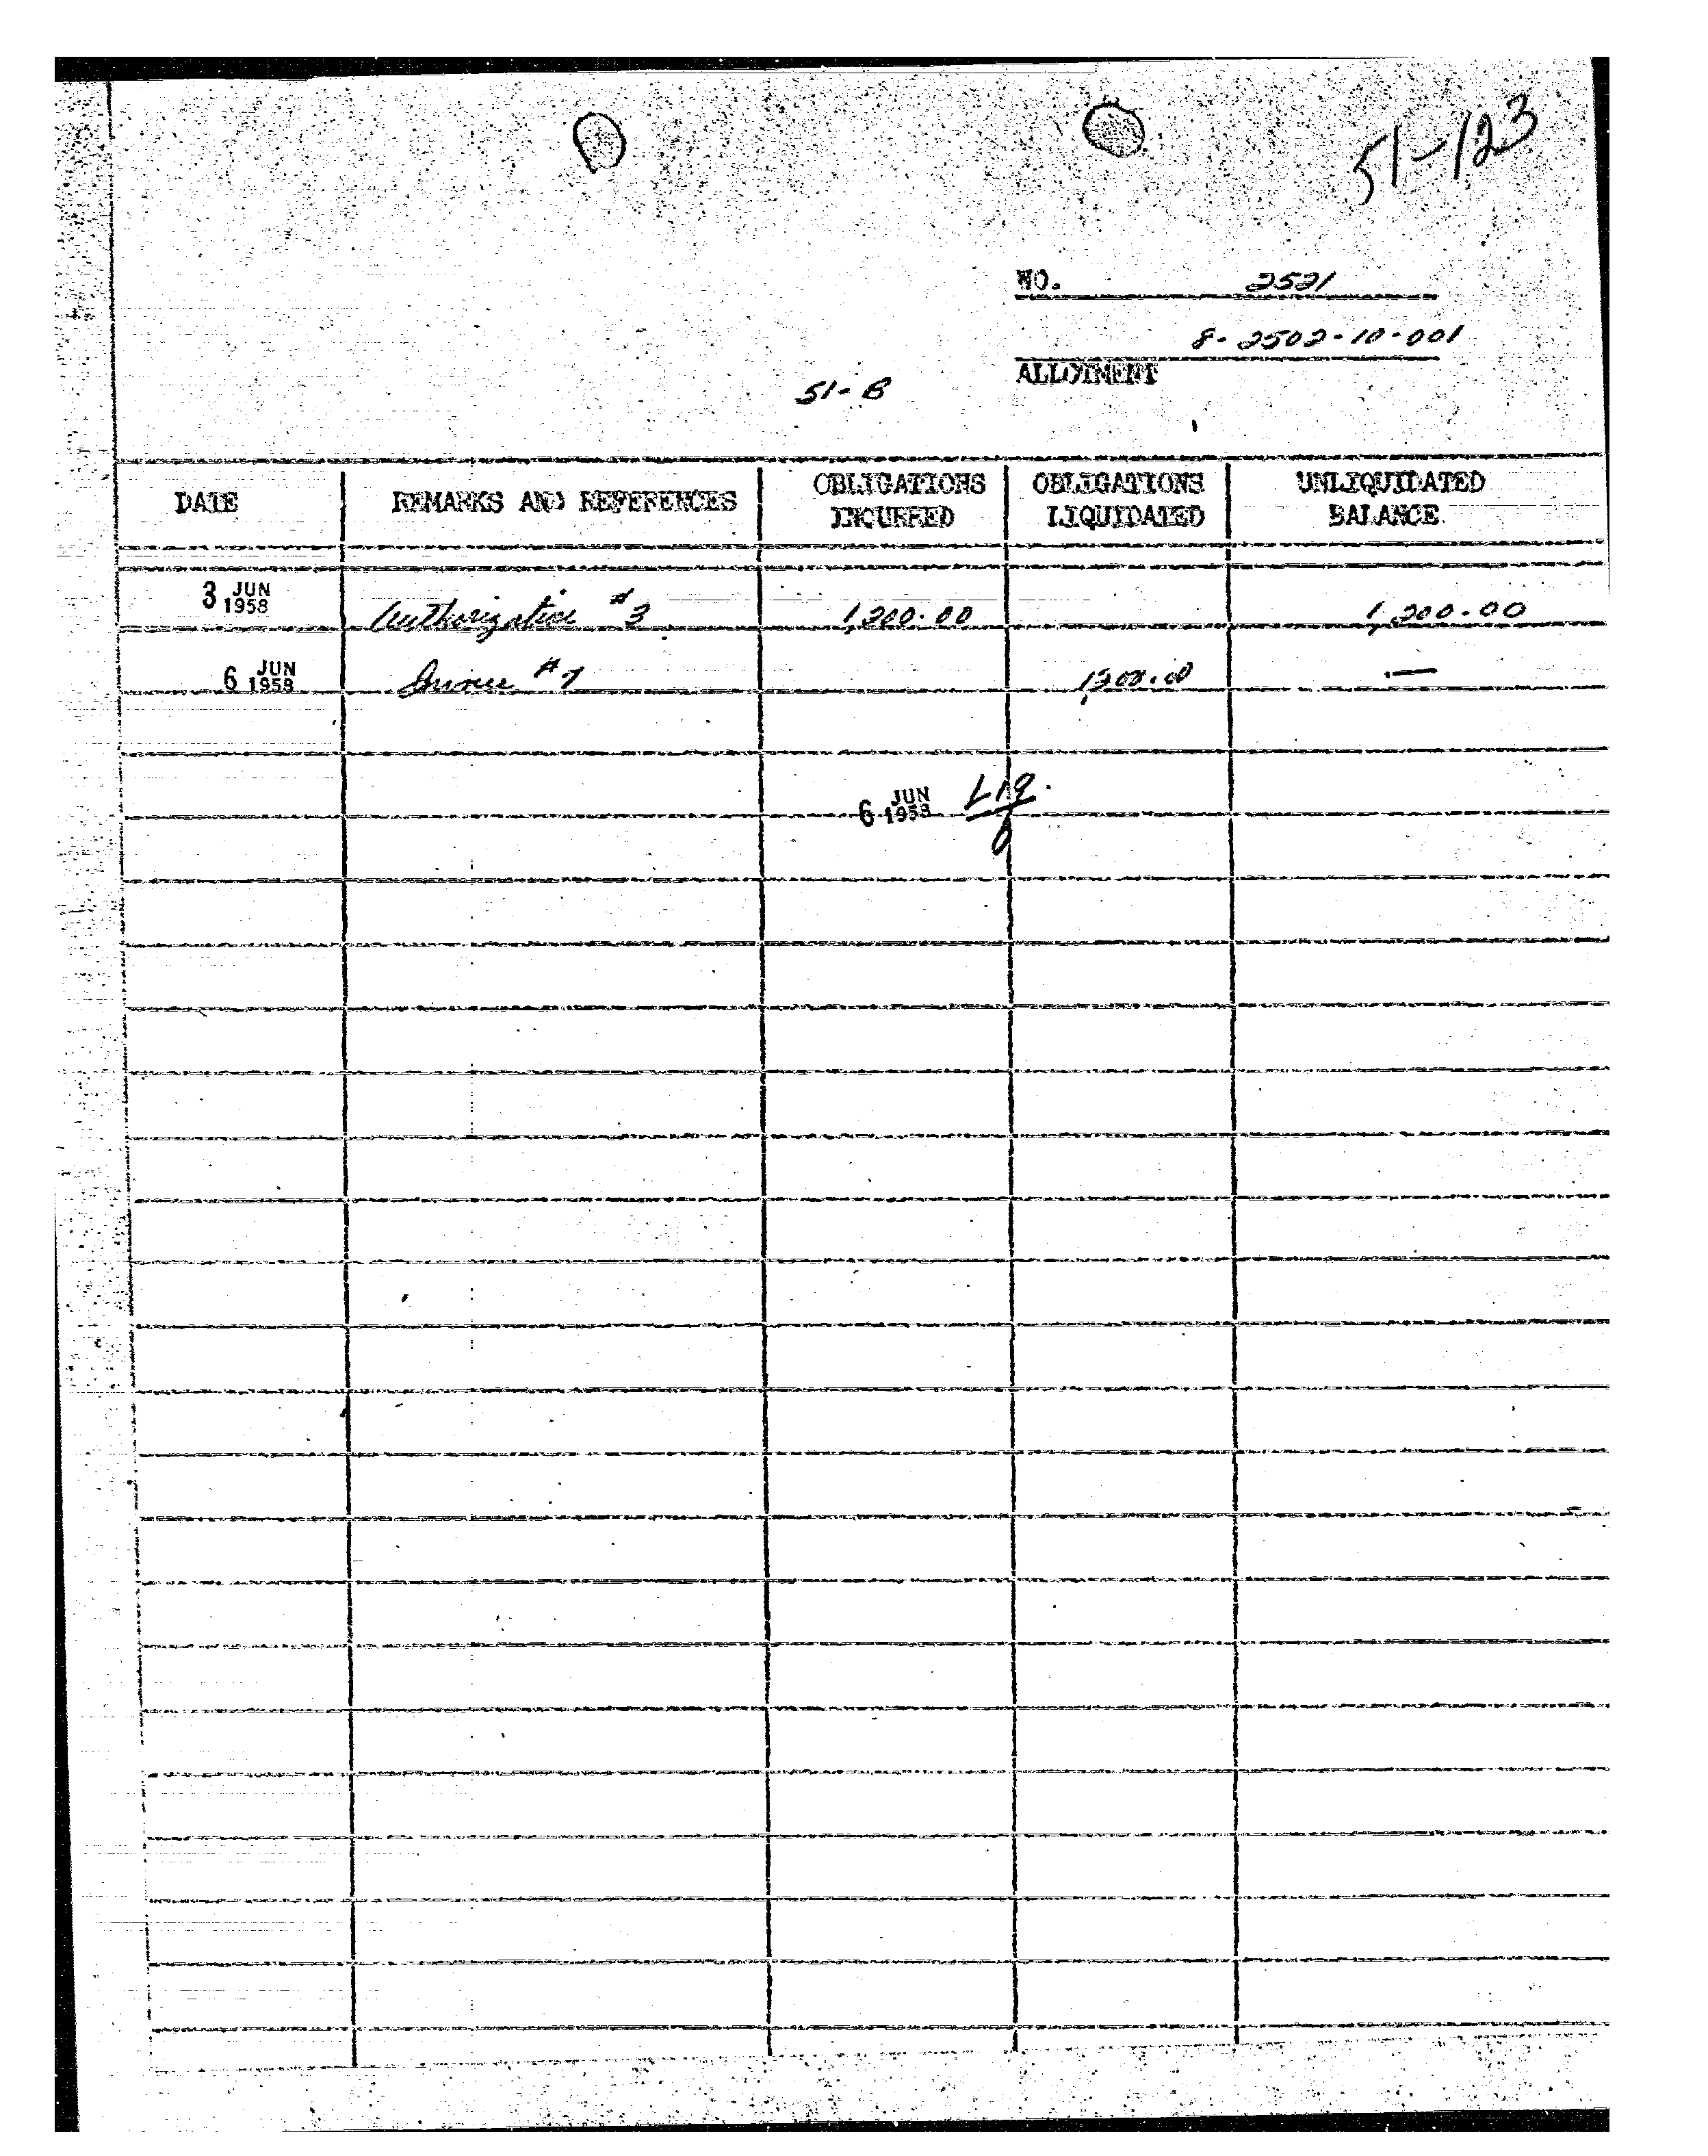 51-123
NO. 2521
8-2502-10-001
ALLOTMENT
51-B
DATE REMARKS AND REFERENCES OBLIGATIONS INCURRED OBLIGATIONS LIQUIDATED UNLIQUIDATED BALANCE
3 JUN 1958 Authorization #3 1,200.00 1,200.00
6 JUN 1958 Invoice #7 1,200.00 —
6 JUN 1958 Liq.